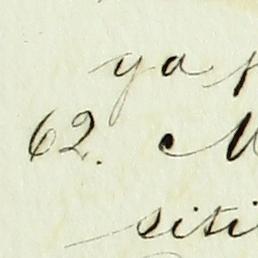 ya
62. M
siti